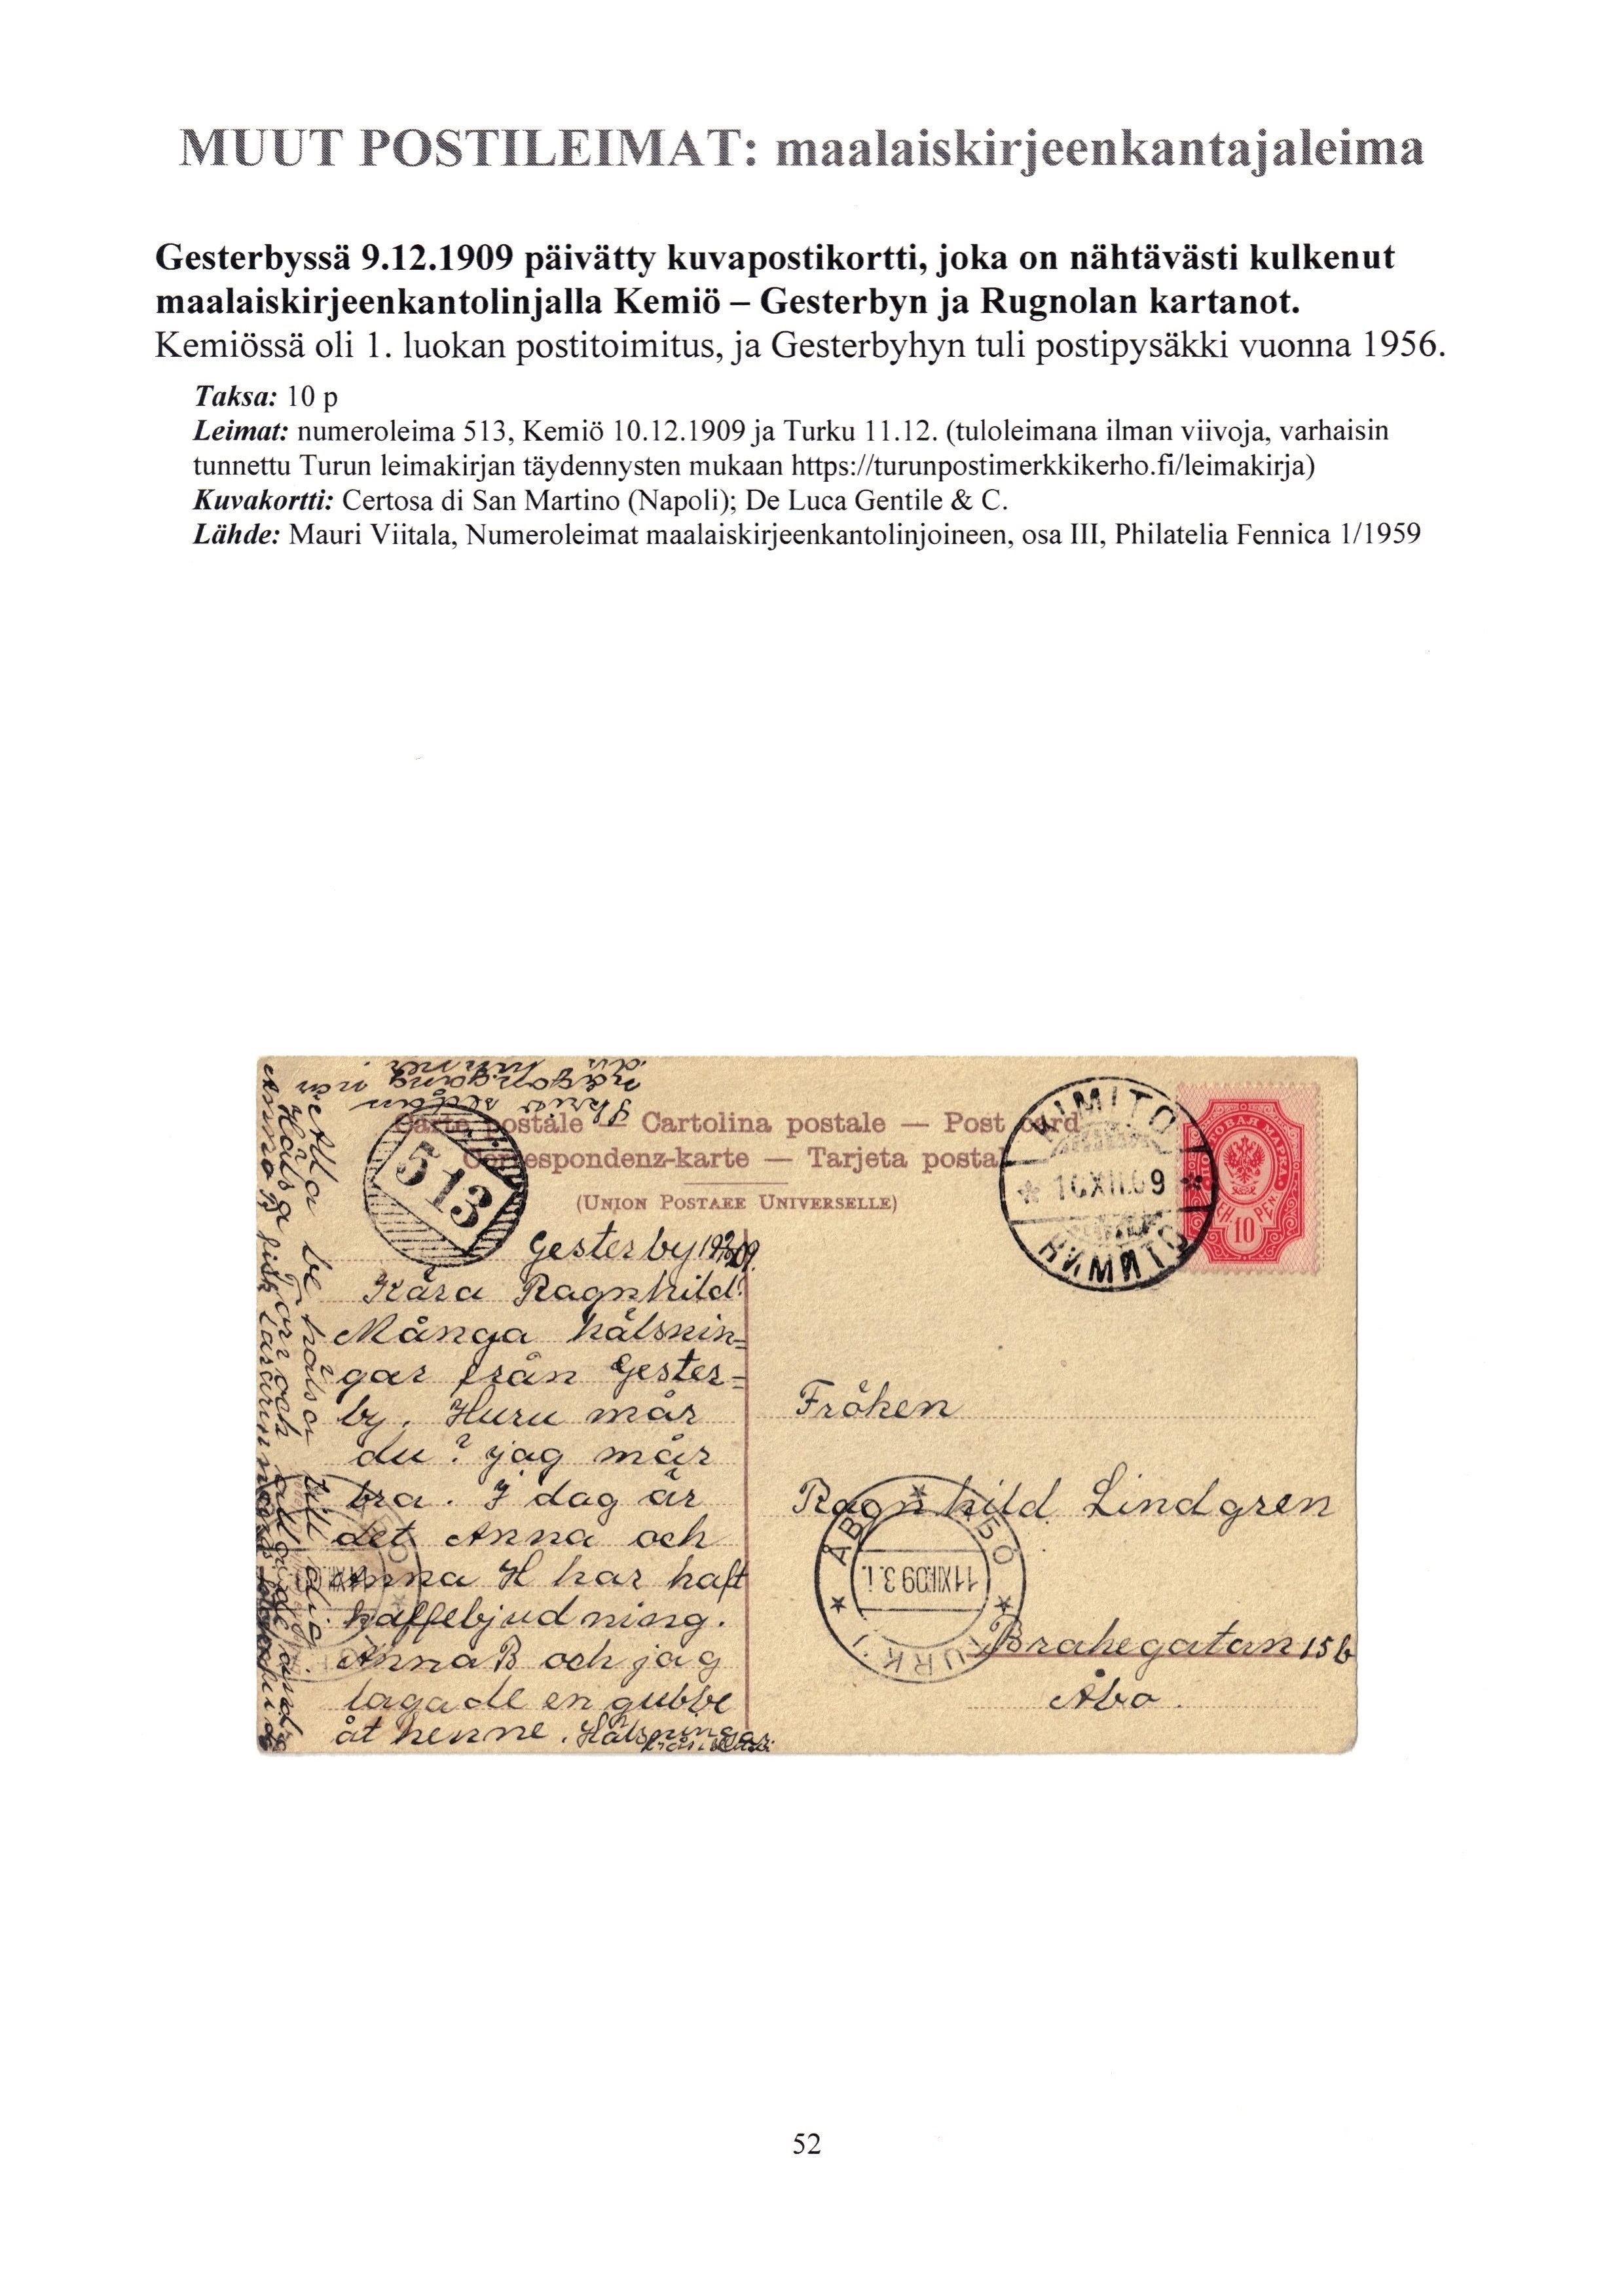 MUUT POSTILEIMAT: maalaiskirjeenkantajaleima
Gesterbyssä 9.12.1909 päivätty kuvapostikortti, joka on nähtävästi kulkenut
maalaiskirjeenkantolinjalla Kemiö – Gesterbyn ja Rugnolan kartanot.
Kemiössä oli 1. luokan postitoimitus, ja Gesterbyhyn tuli postipysäkki vuonna 1956.
Taksa: 10 p
Leimat: numeroleima 513, Kemiö 10.12.1909 ja Turku 11.12. (tuloleimana ilman viivoja, varhaisin
tunnettu Turun leimakirjan täydennysten mukaan https://turunpostimerkkikerho.fi/leimakirja)
Kuvakortti: Certosa di San Martino (Napoli); De Luca Gentile & C.
Lähde: Mauri Viitala, Numeroleimat maalaiskirjeenkantolinjoineen, osa III, Philatelia Fennica 1/1959
Skriv sedan
någongång när
du hinner.
Carte postale — Cartolina postale — Post card
Correspondenz-karte — Tarjeta postal
(Union Postaee Universelle)
513
KIMITO
10.XII.09
КИМИТО
МАРКА
10 PEN.
Gesterby
Kära Ragnhild!
Många hälsnin=
gar från Gester=
by. Huru mår
du? jag mår
bra. I dag är
det Anna och
Anna H har haft
kaffebjudning.
Anna B och jag
lagade en gubbe
åt henne. Hälsningar
Märtha be hälsa till dig.
Hälsa
Fröken
Ragnhild Lindgren
Brahegatan 15 b
Åbo.
ÅBO АБО
11.XII.09.3.I.
TURKU
52